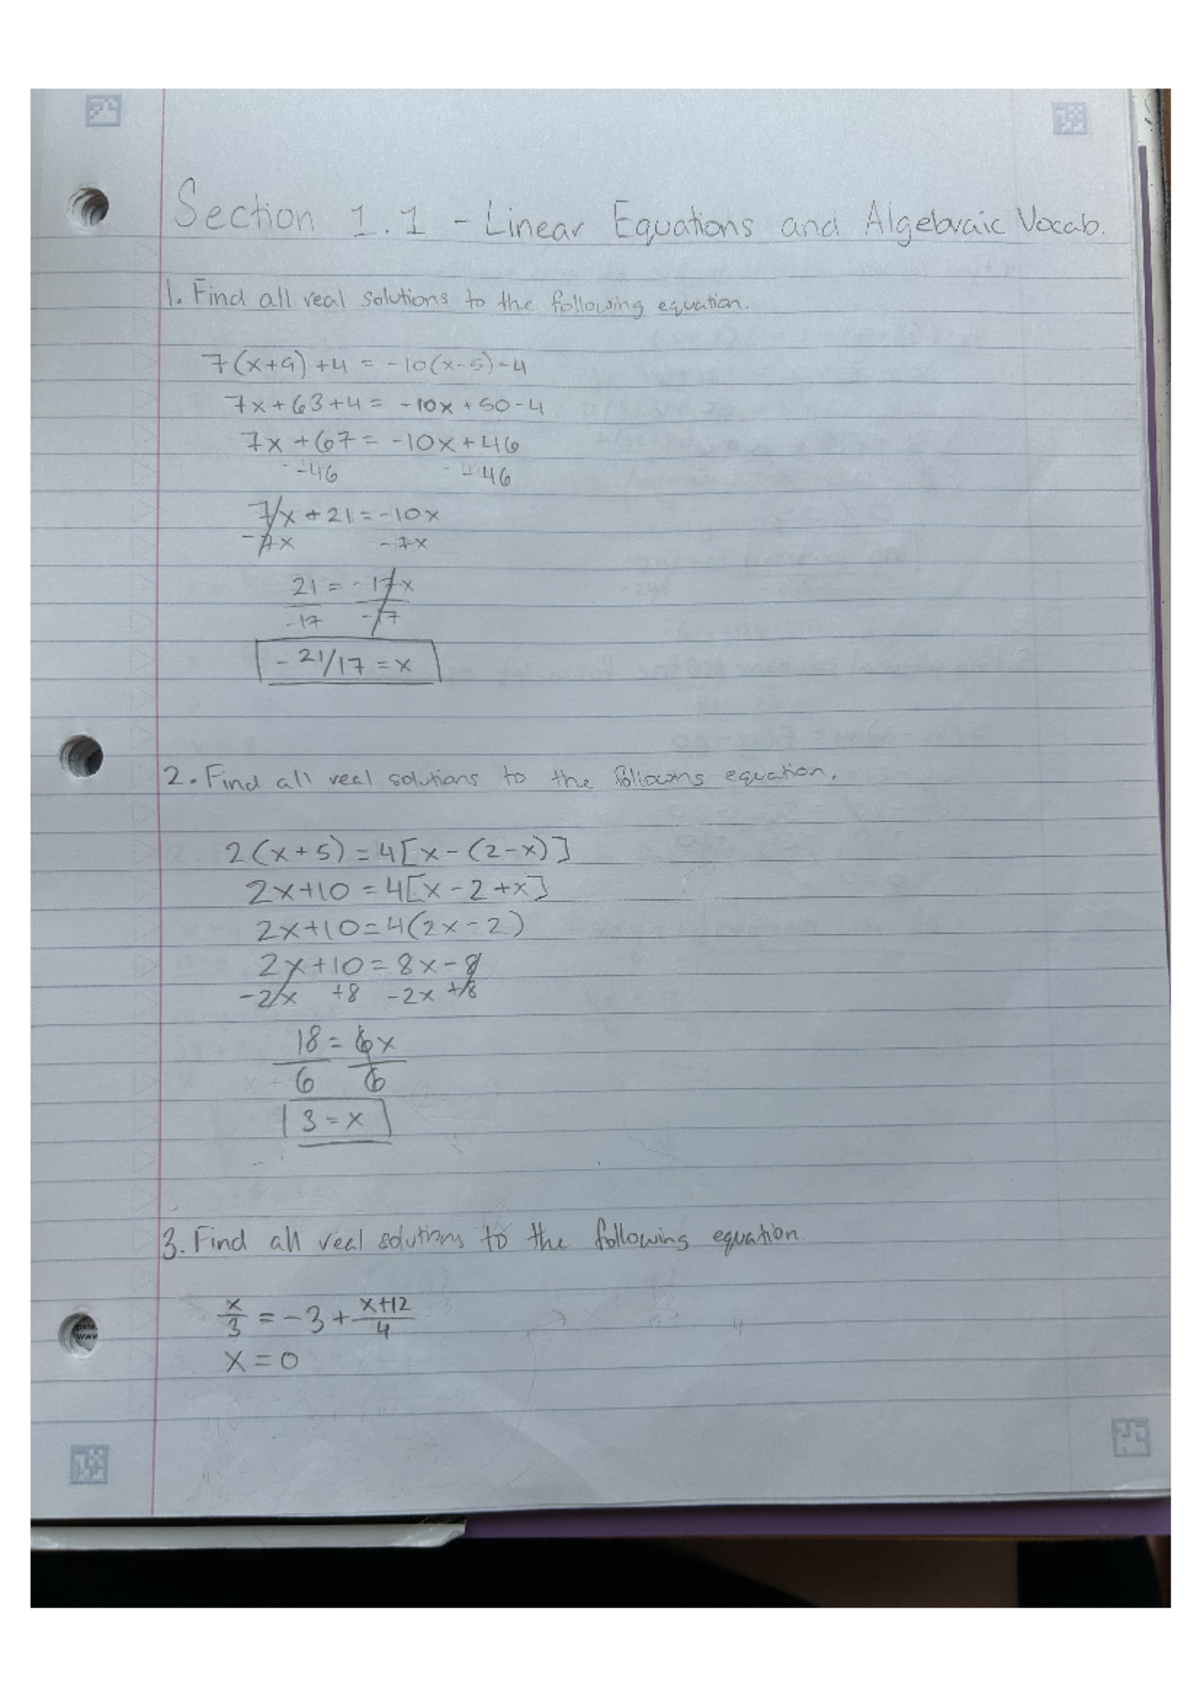 Section 1.1 - Linear Equations and Algebraic Vocab.
1. Find all real solutions to the following equation.
7(x+9)+4 = -10(x-5)-4
7x+63+4 = -10x+50-4
7x+67 = -10x+46
-46 -46
7x+21 = -10x
-7x -7x
21 = -17x
-17 -17
-21/17 = x
2. Find all real solutions to the following equation.
2(x+5) = 4[x-(2-x)]
2x+10 = 4[x-2+x]
2x+10 = 4(2x-2)
2x+10 = 8x-8
-2x +8 -2x +8
18 = 6x
6 6
3 = x
3. Find all real solutions to the following equation
x/3 = -3 + x+12/4
x = 0